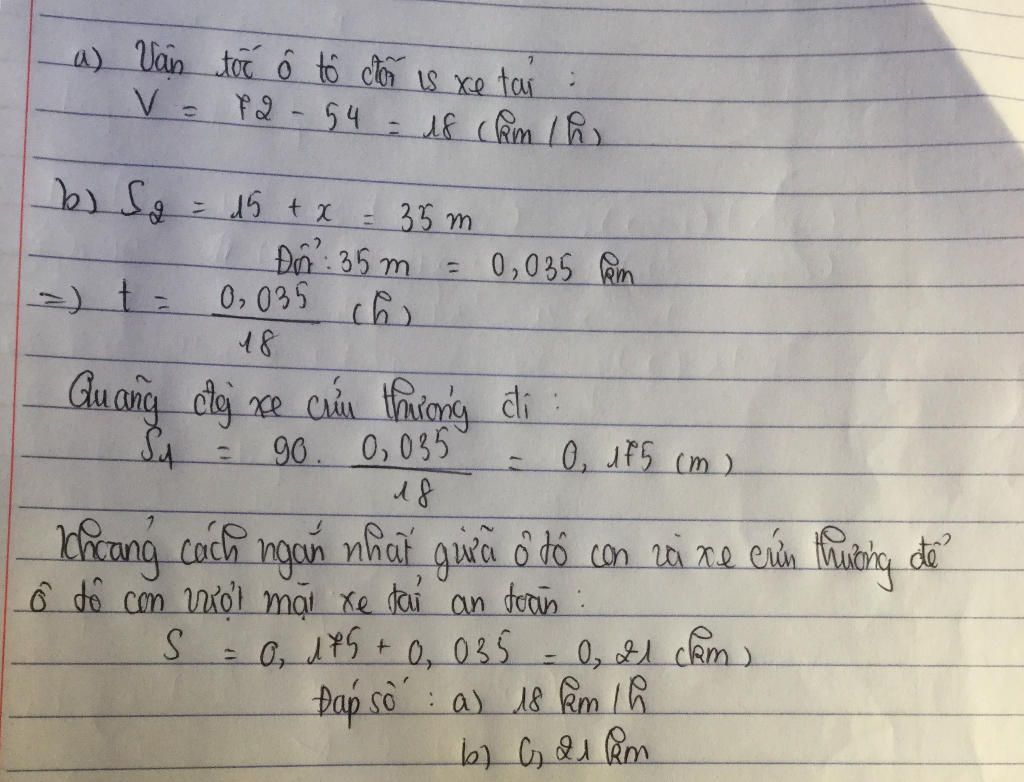 a) Vận tốc ô tô đối vs xe tải :
V = 72 - 54 = 18 (km/h)
b) S2 = 15 + x = 35 m
Đổi : 35 m = 0,035 km
=> t = 0,035/18 (h)
Quãng đg xe cứu thương đi :
S1 = 90. 0,035/18 = 0,175 (m)
Khoảng cách ngắn nhất giữa ô tô con và xe cứu thương để
ô tô con vượt mặt xe tải an toàn :
S = 0,175 + 0,035 = 0,21 (km)
Đáp số : a) 18 km/h
b) 0,21 km